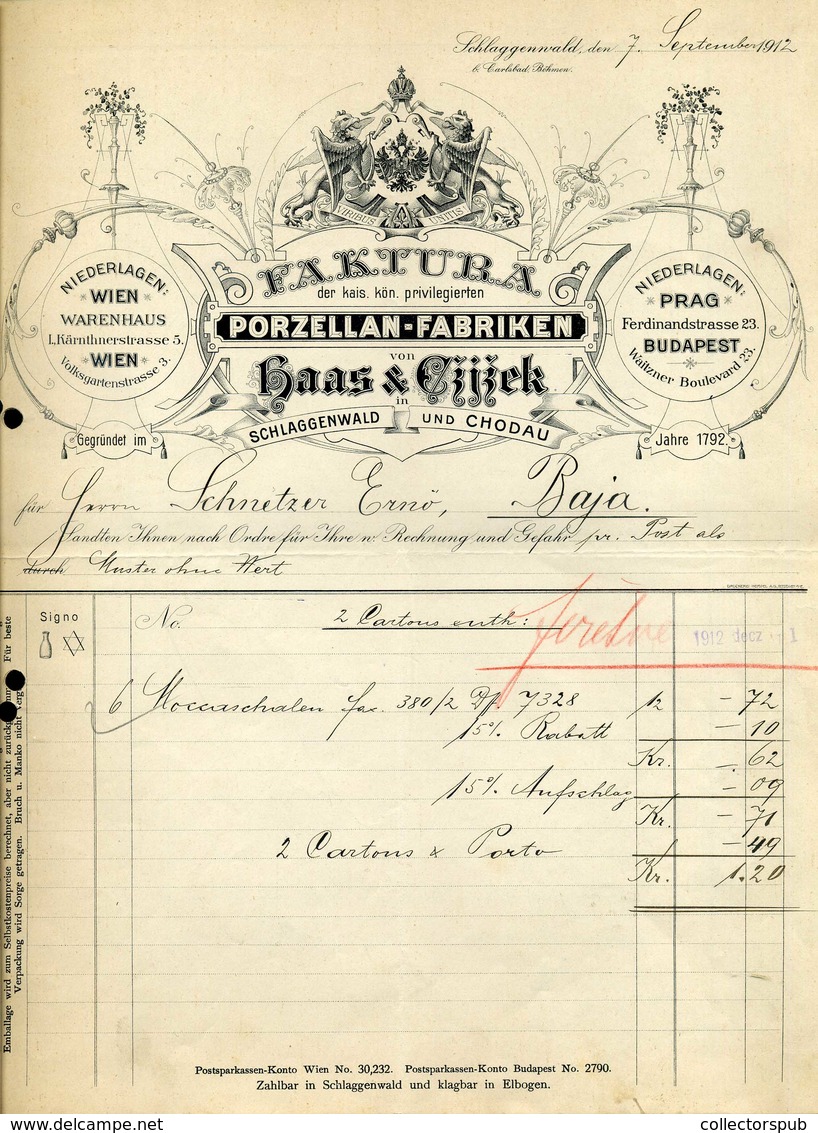 Schlaggenwald, den 7. September 1912
b. Carlsbad, Böhmen.
VIRIBUS UNITIS
FAKTURA
der kais. kön. privilegierten
PORZELLAN-FABRIKEN
von
Haas & Czjžek
in
SCHLAGGENWALD UND CHODAU
NIEDERLAGEN:
WIEN
WARENHAUS
I., Kärnthnerstrasse 5.
WIEN
Volksgartenstrasse 3.
NIEDERLAGEN:
PRAG
Ferdinandstrasse 23.
BUDAPEST
Waitzner Boulevard 23.
Gegründet im
Jahre 1792.
für Herrn Schnetzer Ernö, Baja.
Sandten Ihnen nach Ordre für Ihre w. Rechnung und Gefahr pr. Post als
durch Muster ohne Wert
Signo
No. 2 Cartons enth:
1912 decz 1
6 Moccaschalen fac. 380/2 Df. 7328 12 — 72
15% Rabatt — 10
Kr. —. 62
15% Aufschlag — 09
Kr. — 71
2 Cartons & Porto — 49
Kr. 1.20
Emballage wird zum Selbstkostenpreise berechnet, aber nicht Für beste
Verpackung wird Sorge getragen. Bruch u. Manko nicht
Postsparkassen-Konto Wien No. 30,232. Postsparkassen-Konto Budapest No. 2790.
Zahlbar in Schlaggenwald und klagbar in Elbogen.
collectorspub